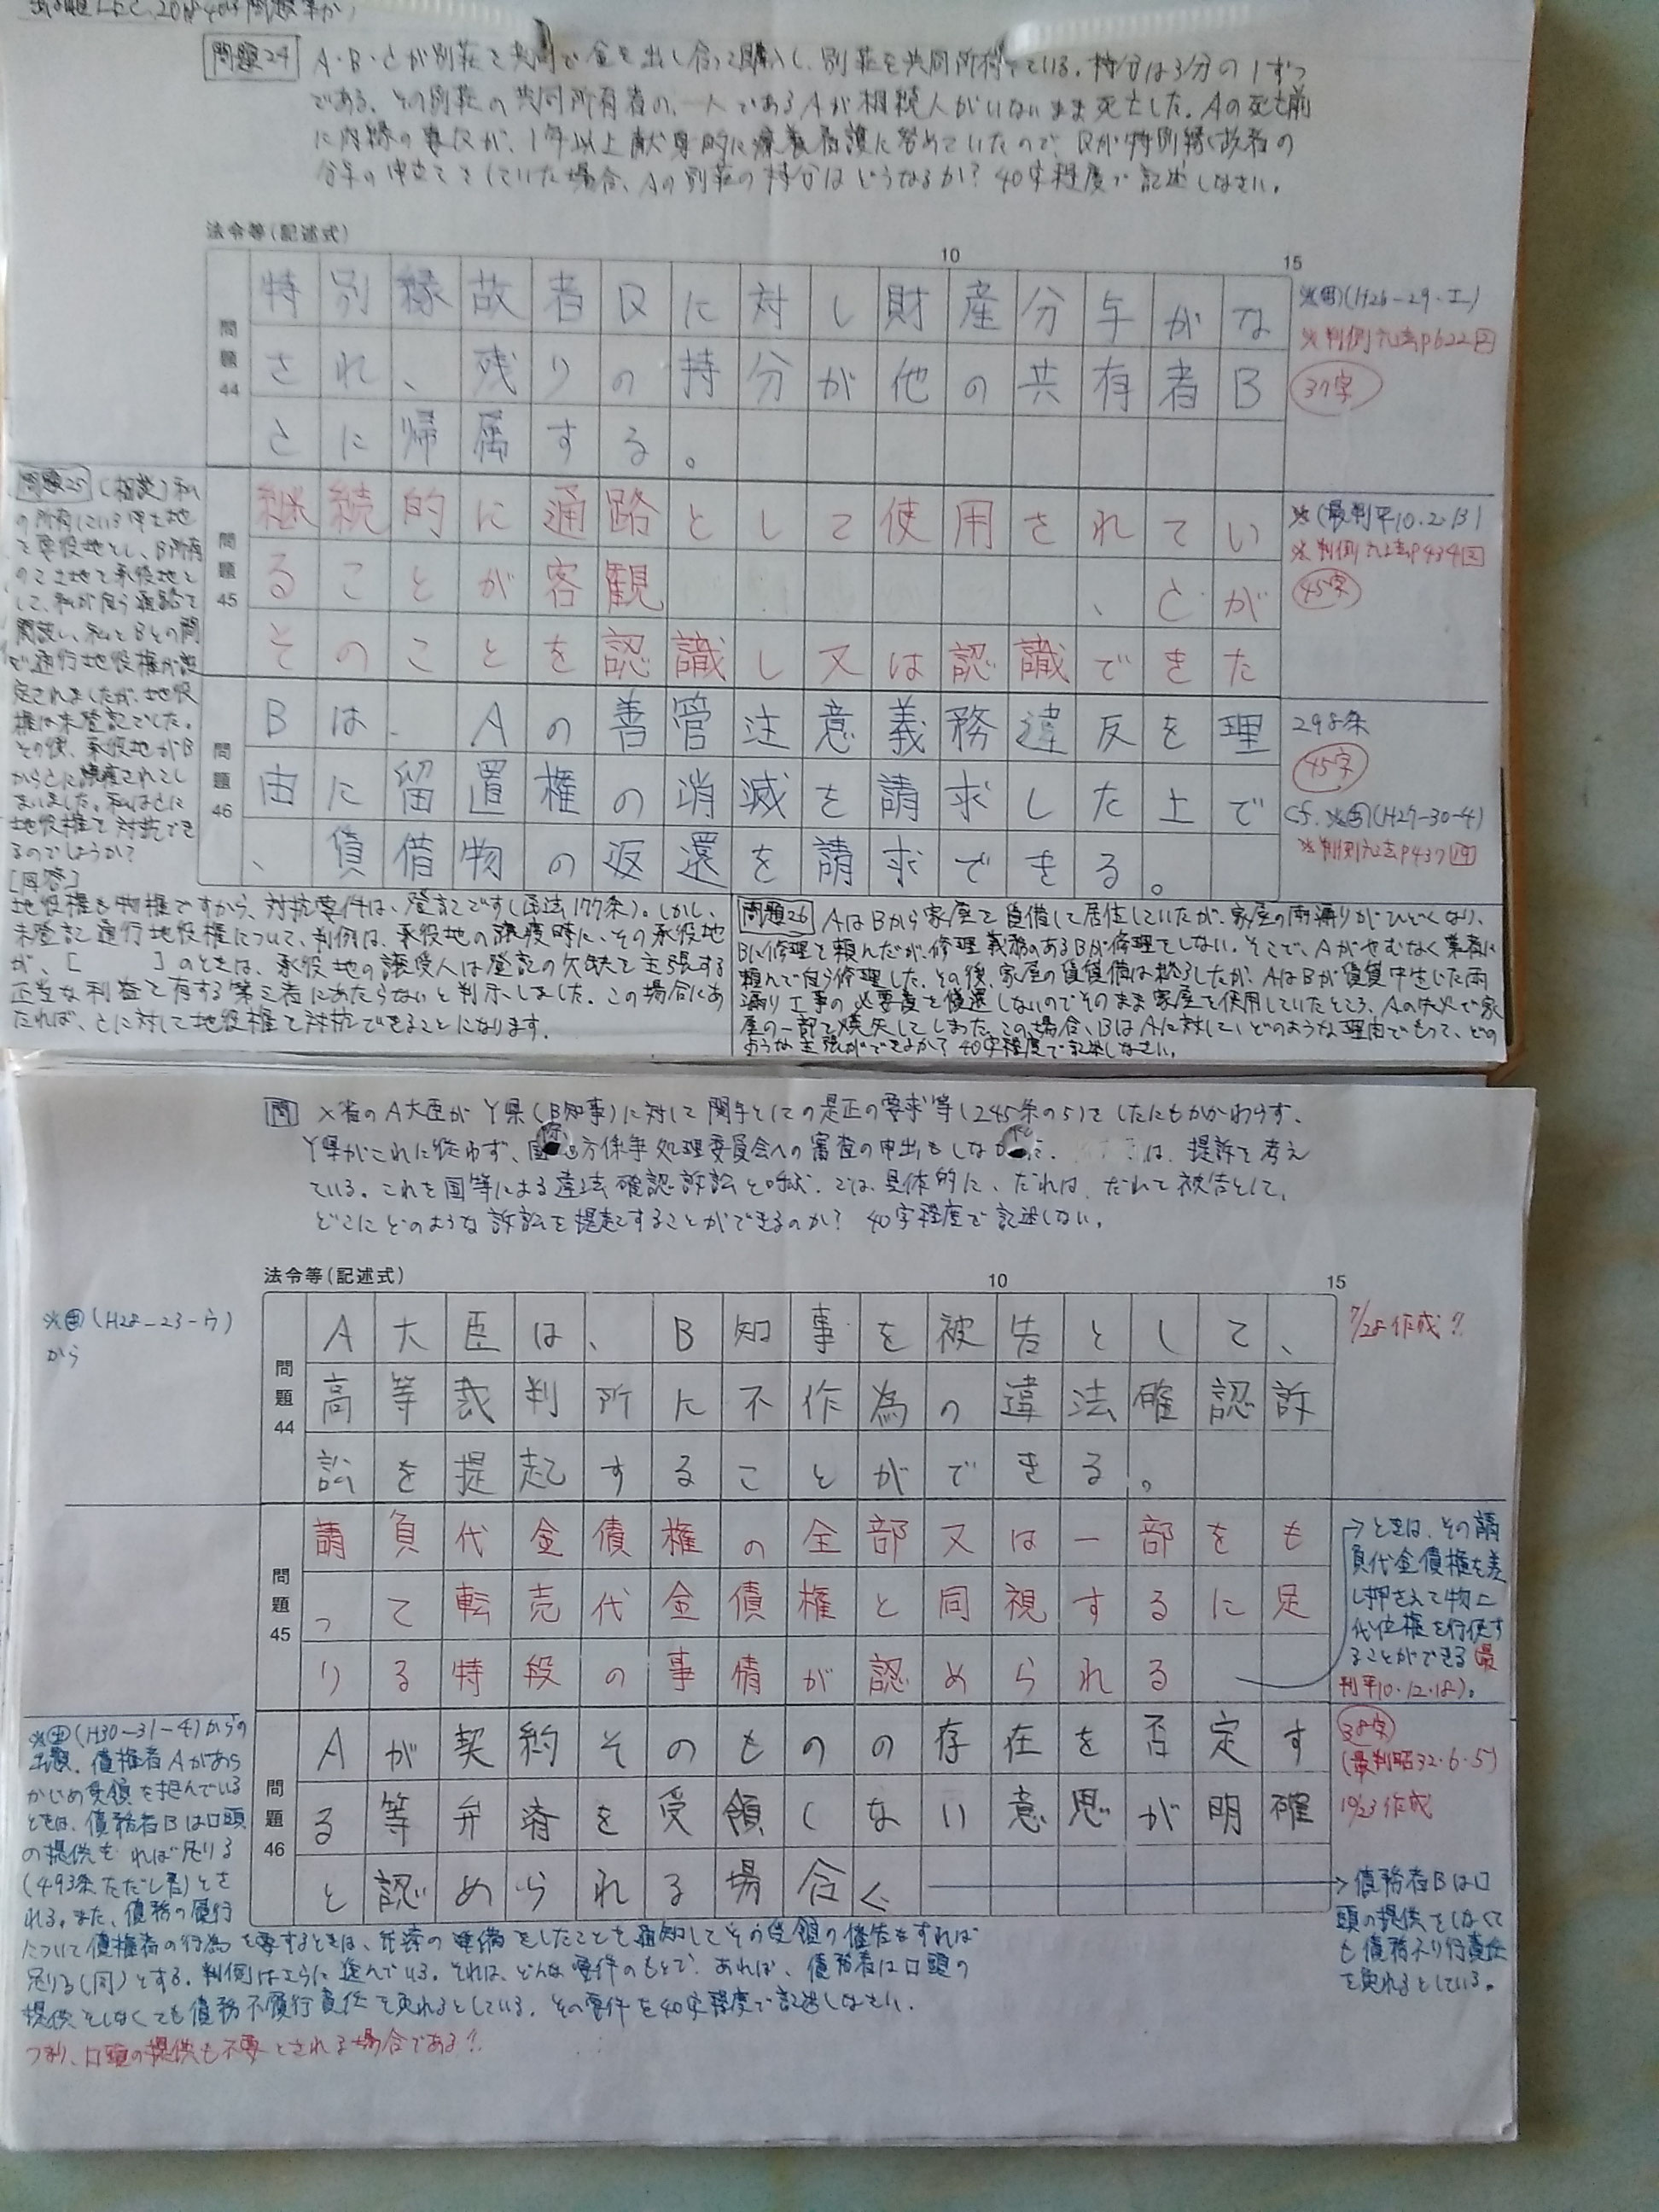 問題24 A・B・Cが別荘を共同で金を出し合って購入し、別荘を共同所有している。持分は3分の1ずつ
である。その別荘の共同所有者の一人であるAが相続人がいないまま死亡した。Aの死亡前
に内縁の妻Dが、1年以上献身的に療養看護に努めていたので、Dが特別縁故者の
分与の申立てをしていた場合、Aの別荘の持分はどうなるか? 40字程度で記述しなさい。
法令等(記述式)
10 15
問題44
特別縁故者Dに対し財産分与がな
され、残りの持分が他の共有者B
Cに帰属する。
※(H26-29-エ)
※判例六法P622
37字
問題25 (相談)私
の所有している甲土地
を要役地とし、B所有
の乙土地を承役地と
して、私が自ら通路を
開設し、私とBとの間
で通行地役権が設
定されましたが、地役
権は未登記でした。
その後、承役地がB
からCに譲渡されてし
まいました。私はCに
地役権を対抗でき
るのでしょうか?
[回答]
地役権も物権ですから、対抗要件は、登記です(民法177条)。しかし、
未登記通行地役権について、判例は、承役地の譲渡時に、その承役地
が、[ ]のときは、承役地の譲受人は登記の欠缺を主張する
正当な利益を有する第三者にあたらないと判示しました。この場合にあ
たれば、Cに対して地役権を対抗できることになります。
問題45
継続的に通路として使用されてい
ることが客観 、Cが
そのことを認識し又は認識できた
※(最判平10.2.13)
※判例六法P434
45字
問題46
Bは、Aの善管注意義務違反を理
由に留置権の消滅を請求した上で
、賃借物の返還を請求できる。
298条
45字
cf.※(H27-30-4)
※判例六法P437
問題26 AはBから家屋を賃借して居住していたが、家屋の雨漏りがひどくなり、
Bに修理を頼んだが、修理義務のあるBが修理をしない。そこで、Aがやむなく業者に
頼んで自ら修理した。その後、家屋の賃貸借は終了したが、AはBが賃貸中生じた雨
漏り工事の必要費を償還しないのでそのまま家屋を使用していたところ、Aの失火で家
屋の一部を焼失してしまった。この場合、BはAに対して、どのような理由でもって、どの
ような主張ができるか? 40字程度で記述しなさい。
問 X省のA大臣がY県(B知事)に対して関与としての是正の要求等(245条の5)をしたにもかかわらず、
Y県がこれに従わず、国 方係争処理委員会への審査の申出もしな は、提訴を考え
ている。これを国等による違法確認訴訟と呼ぶ。では、具体的に、だれは、だれを被告として、
どこにどのような訴訟を提起することができるのか? 40字程度で記述しない。
法令等(記述式)
10 15
※(H28-23-ウ)
から
問題44
A大臣は、B知事を被告として、
高等裁判所に不作為の違法確認訴
訟を提起することができる。
7/28作成?
問題45
請負代金債権の全部又は一部をも
って転売代金債権と同視するに足
りる特段の事情が認められる
→ときは、その請
負代金債権を差
し押さえて物上
代位権を行使す
ることができる(最
判平10・12・18)。
問題46
Aが契約そのものの存在を否定す
る等弁済を受領しない意思が明確
と認められる場合
38字
(最判昭32・6・5)
10/23作成
→債務者Bは口
頭の提供をしなくて
も債務不履行責任
を免れるとしている。
※(H30-31-4)からの
出題。債権者Aがあら
かじめ受領を拒んでいる
ときは、債務者Bは口頭
の提供を れば足りる
(493条ただし書)とさ
れる。また、債務の履行
について債権者の行為を要するときは、弁済の準備をしたことを通知してその受領の催告をすれば
足りる(同)とする。判例はさらに進んでいる。それは、どんな要件のもとで、あれば、債務者は口頭の
提供をしなくても債務不履行責任を免れるとしている。その要件を40字程度で記述しなさい。
つまり、口頭の提供も不要とされる場合である!!